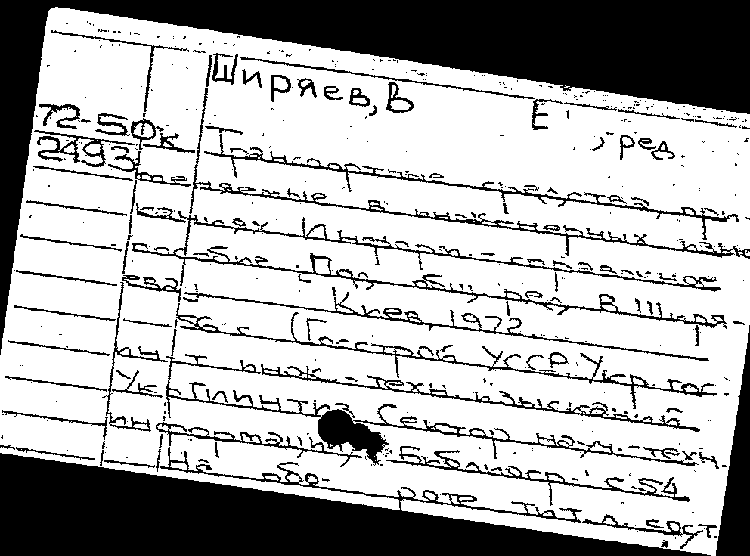 Ширяев, В Е., ред.
72-50к
2493
Транспортные средства, при-
меняемые в инженерных изыс-
каниях Информ.-справочное
пособие. Под общ. ред. В Ширя-
ева] - Киев, 1972
56 с (Госстрой УССР. Укр. гос.
ин-т инж.-техн. изысканий
УкрГИИНТИЗ Сектор науч.-техн.
информации) Библиогр.: с. 54
На обо- роте тит. л. сост.